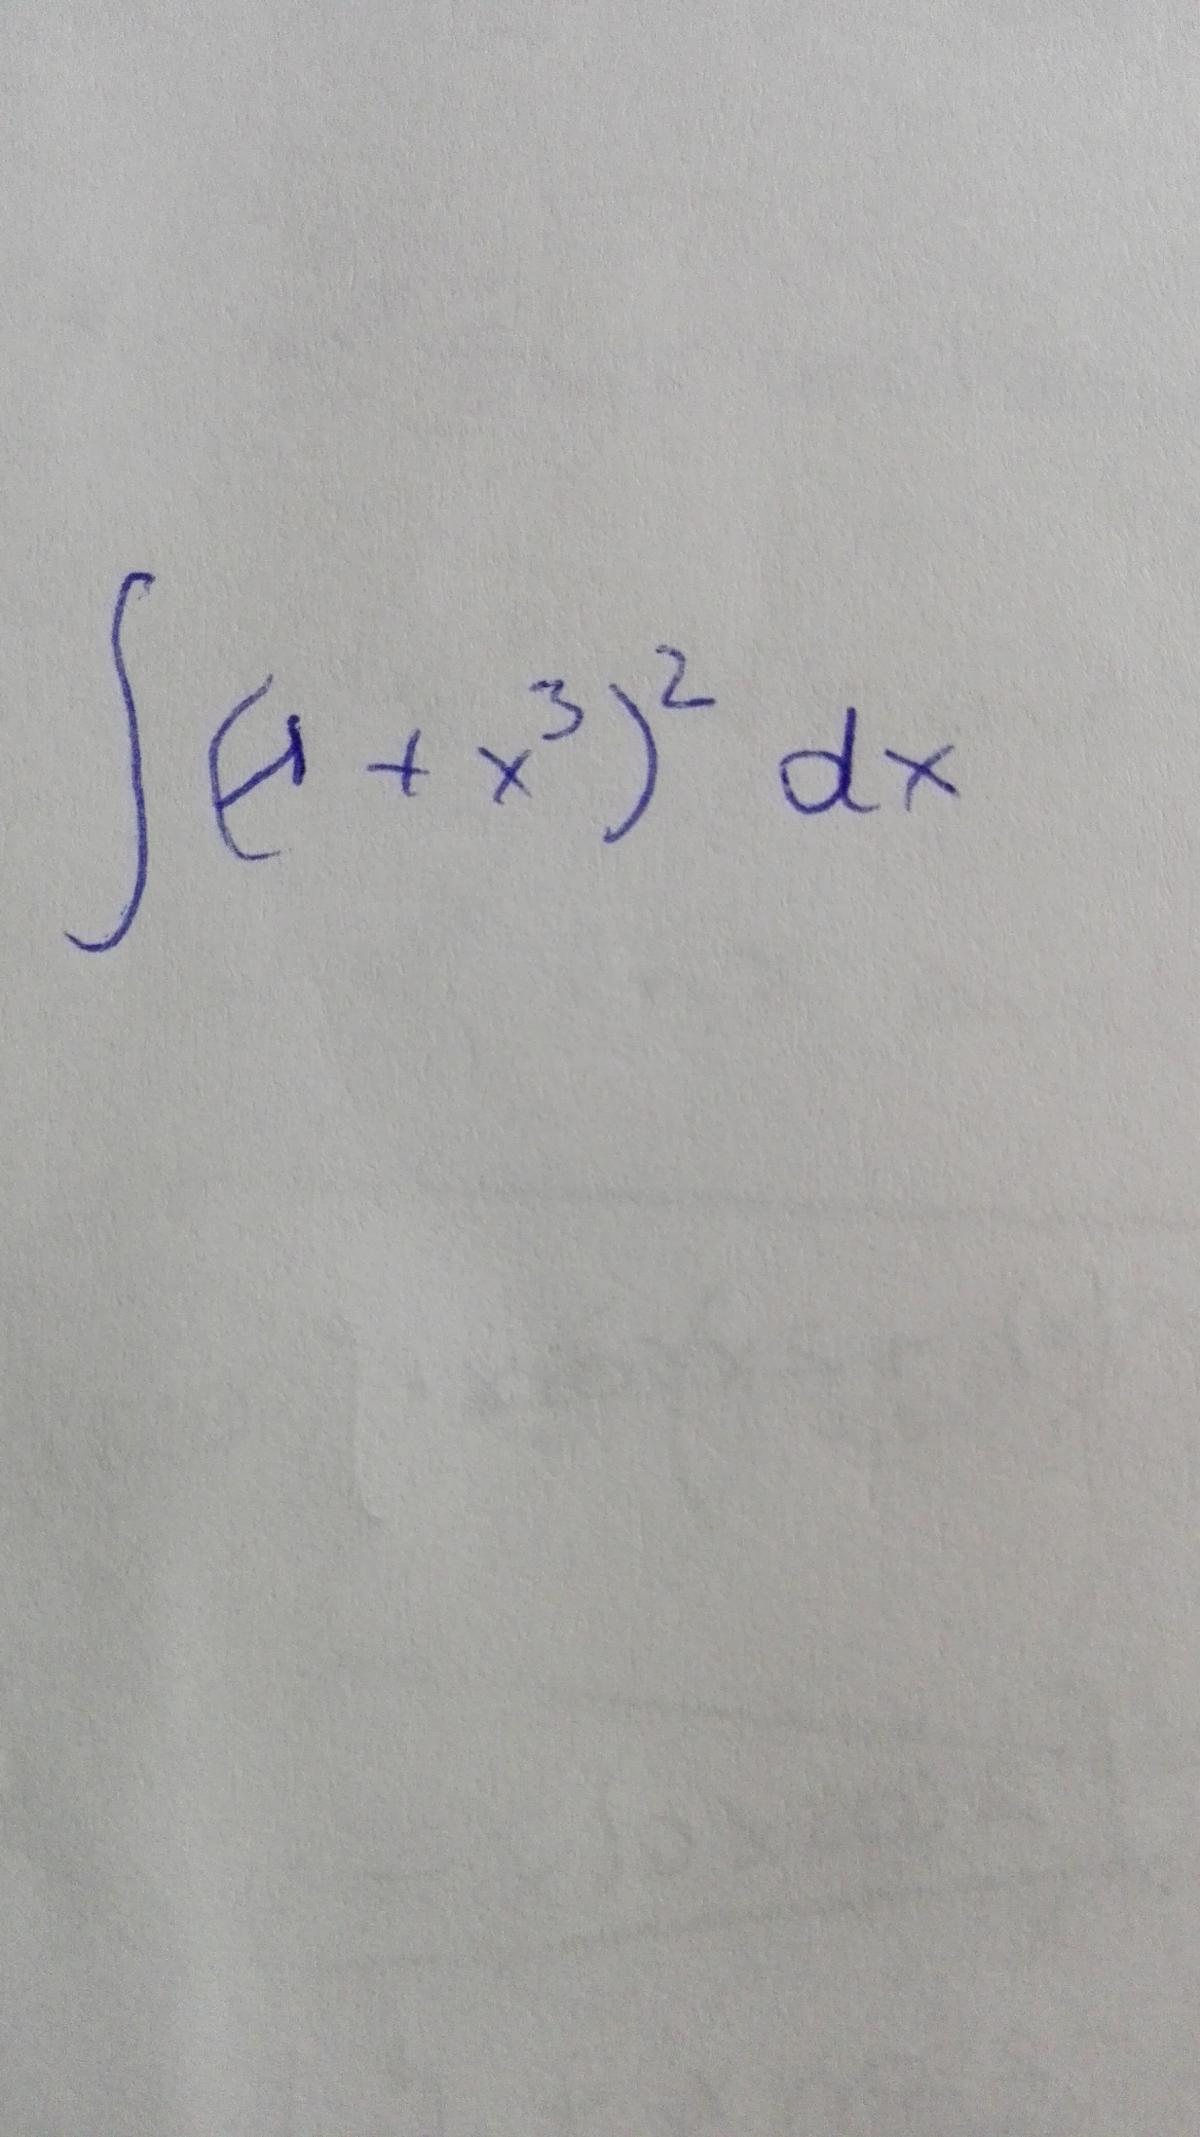 ∫(1 + x³)² dx